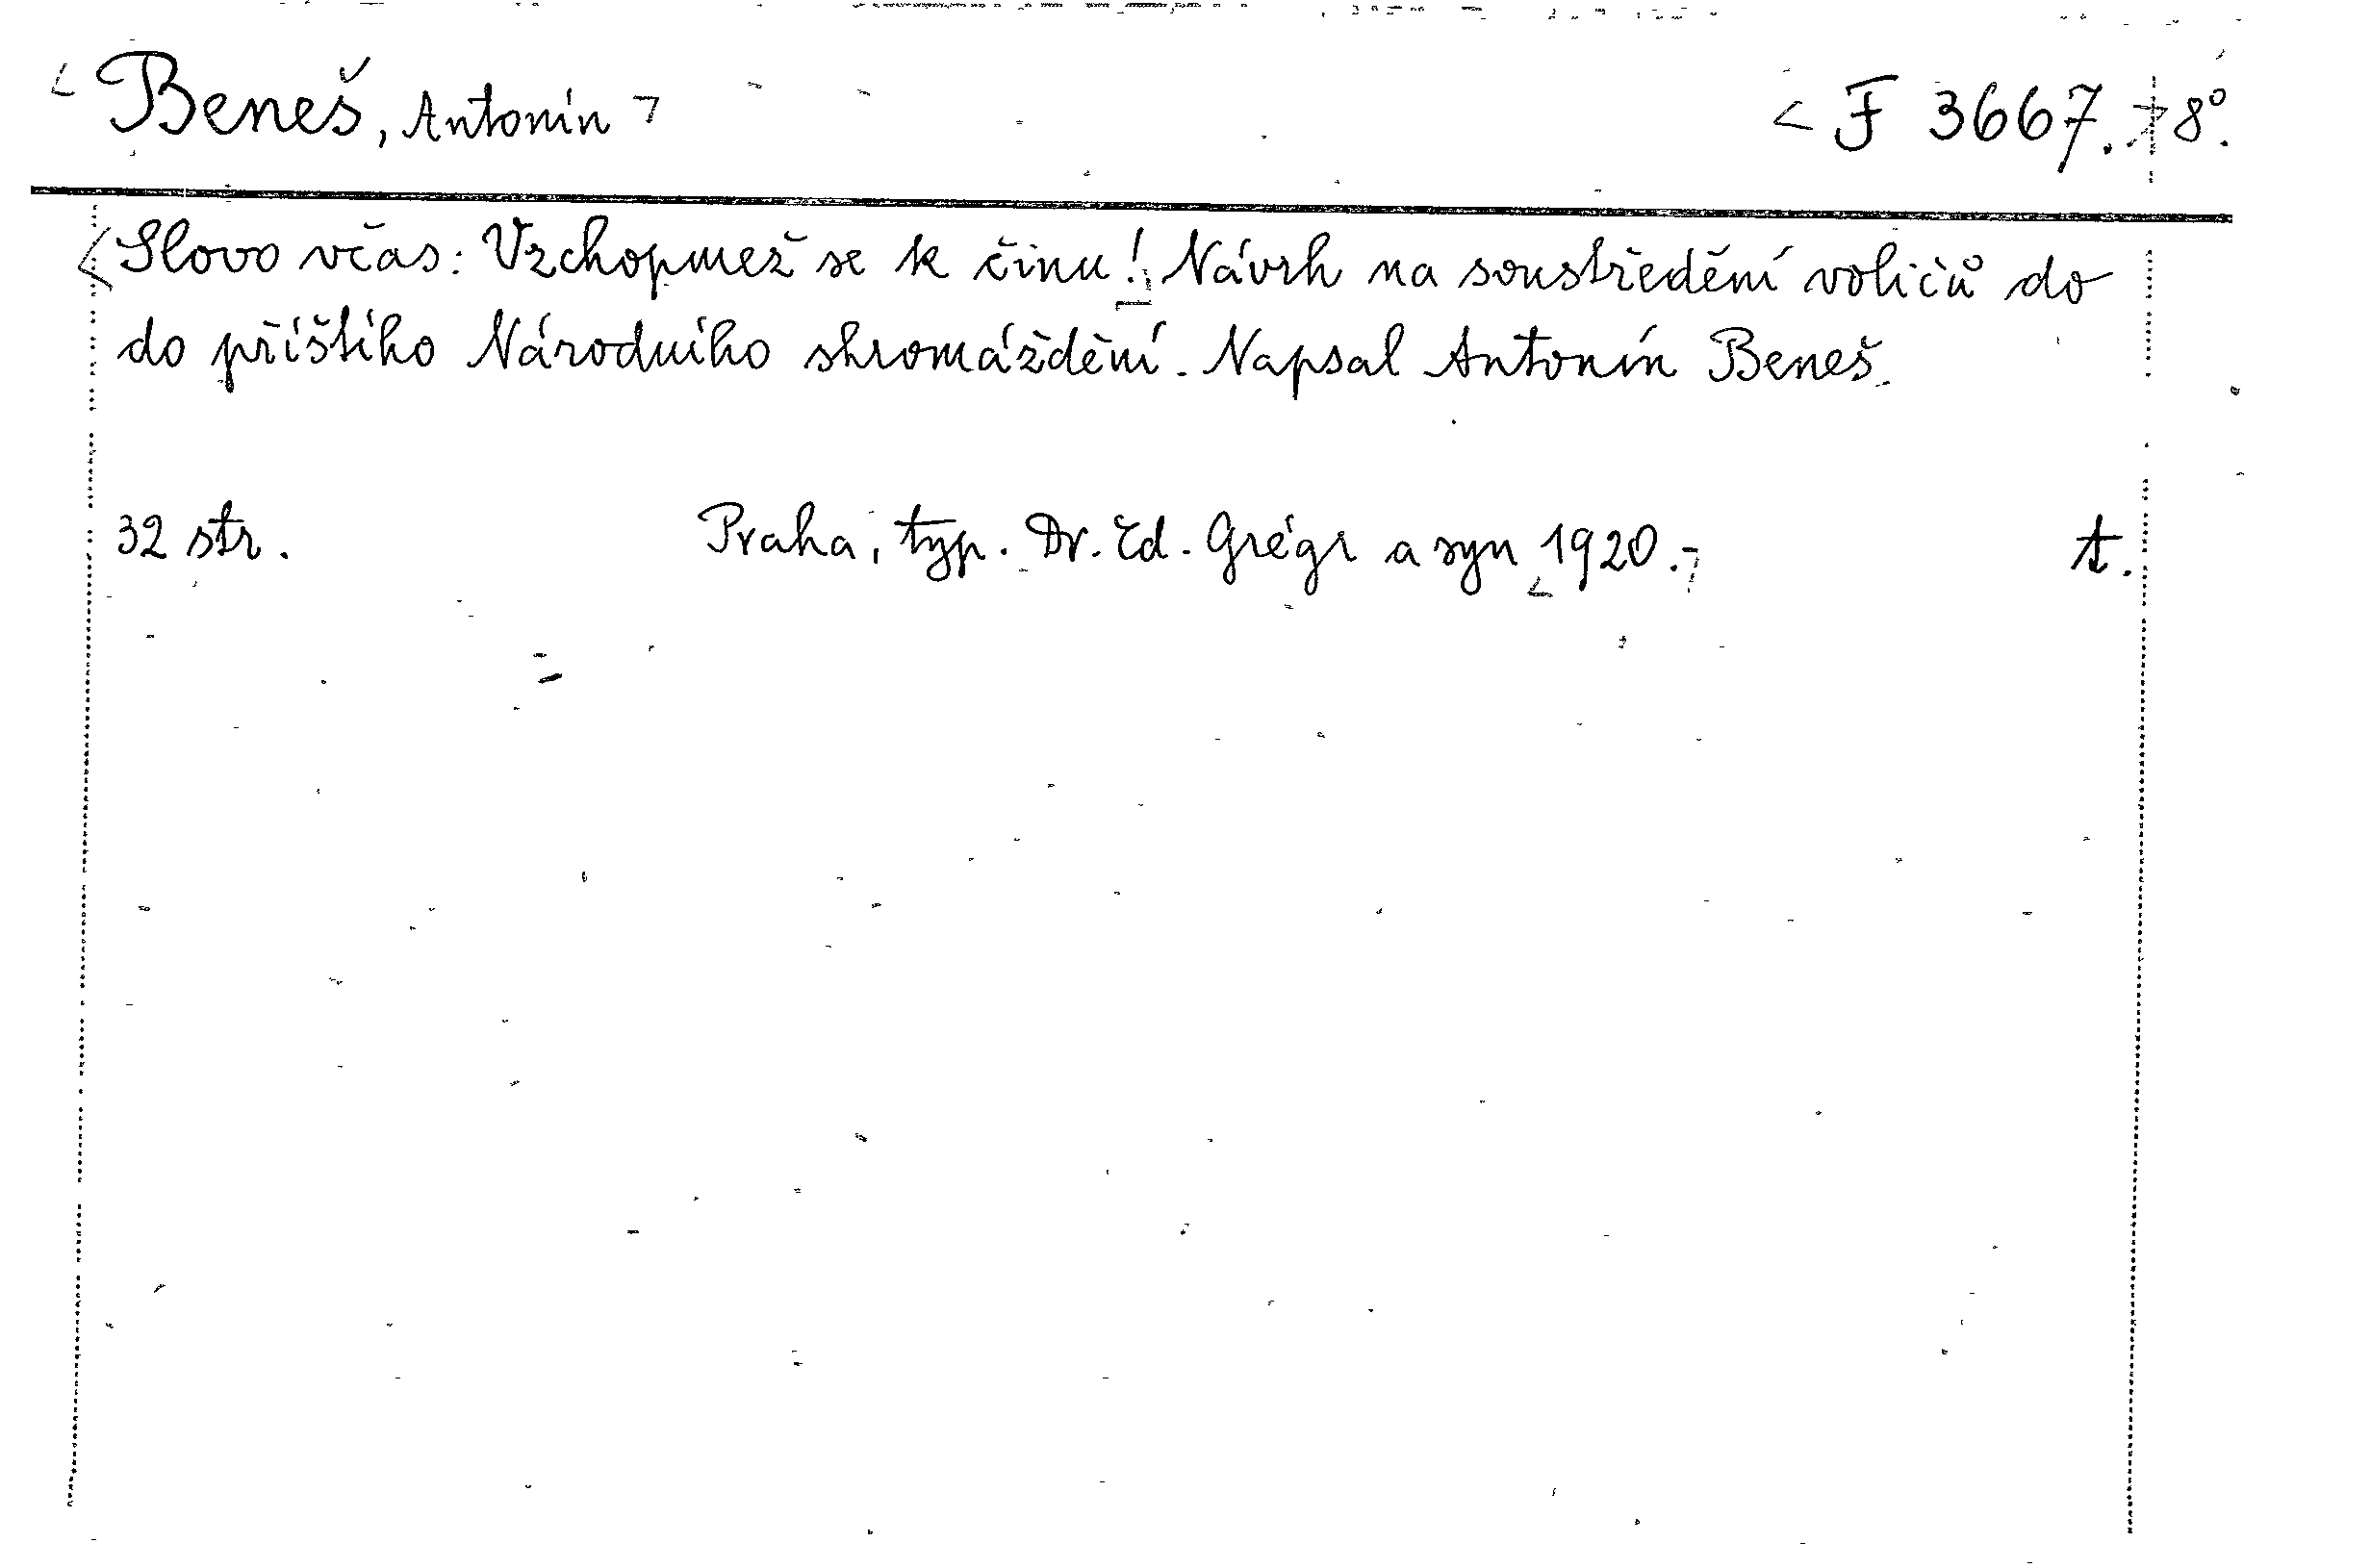 Beneš, Antonín F 3667. 8°.
Slovo včas: Vzchopmež se k činu! Návrh na soustředění voličů do
do příštího Národního shromáždění. Napsal Antonín Beneš.
32 str. Praha, typ. Dr. Ed. Grégr a syn 1920. t.